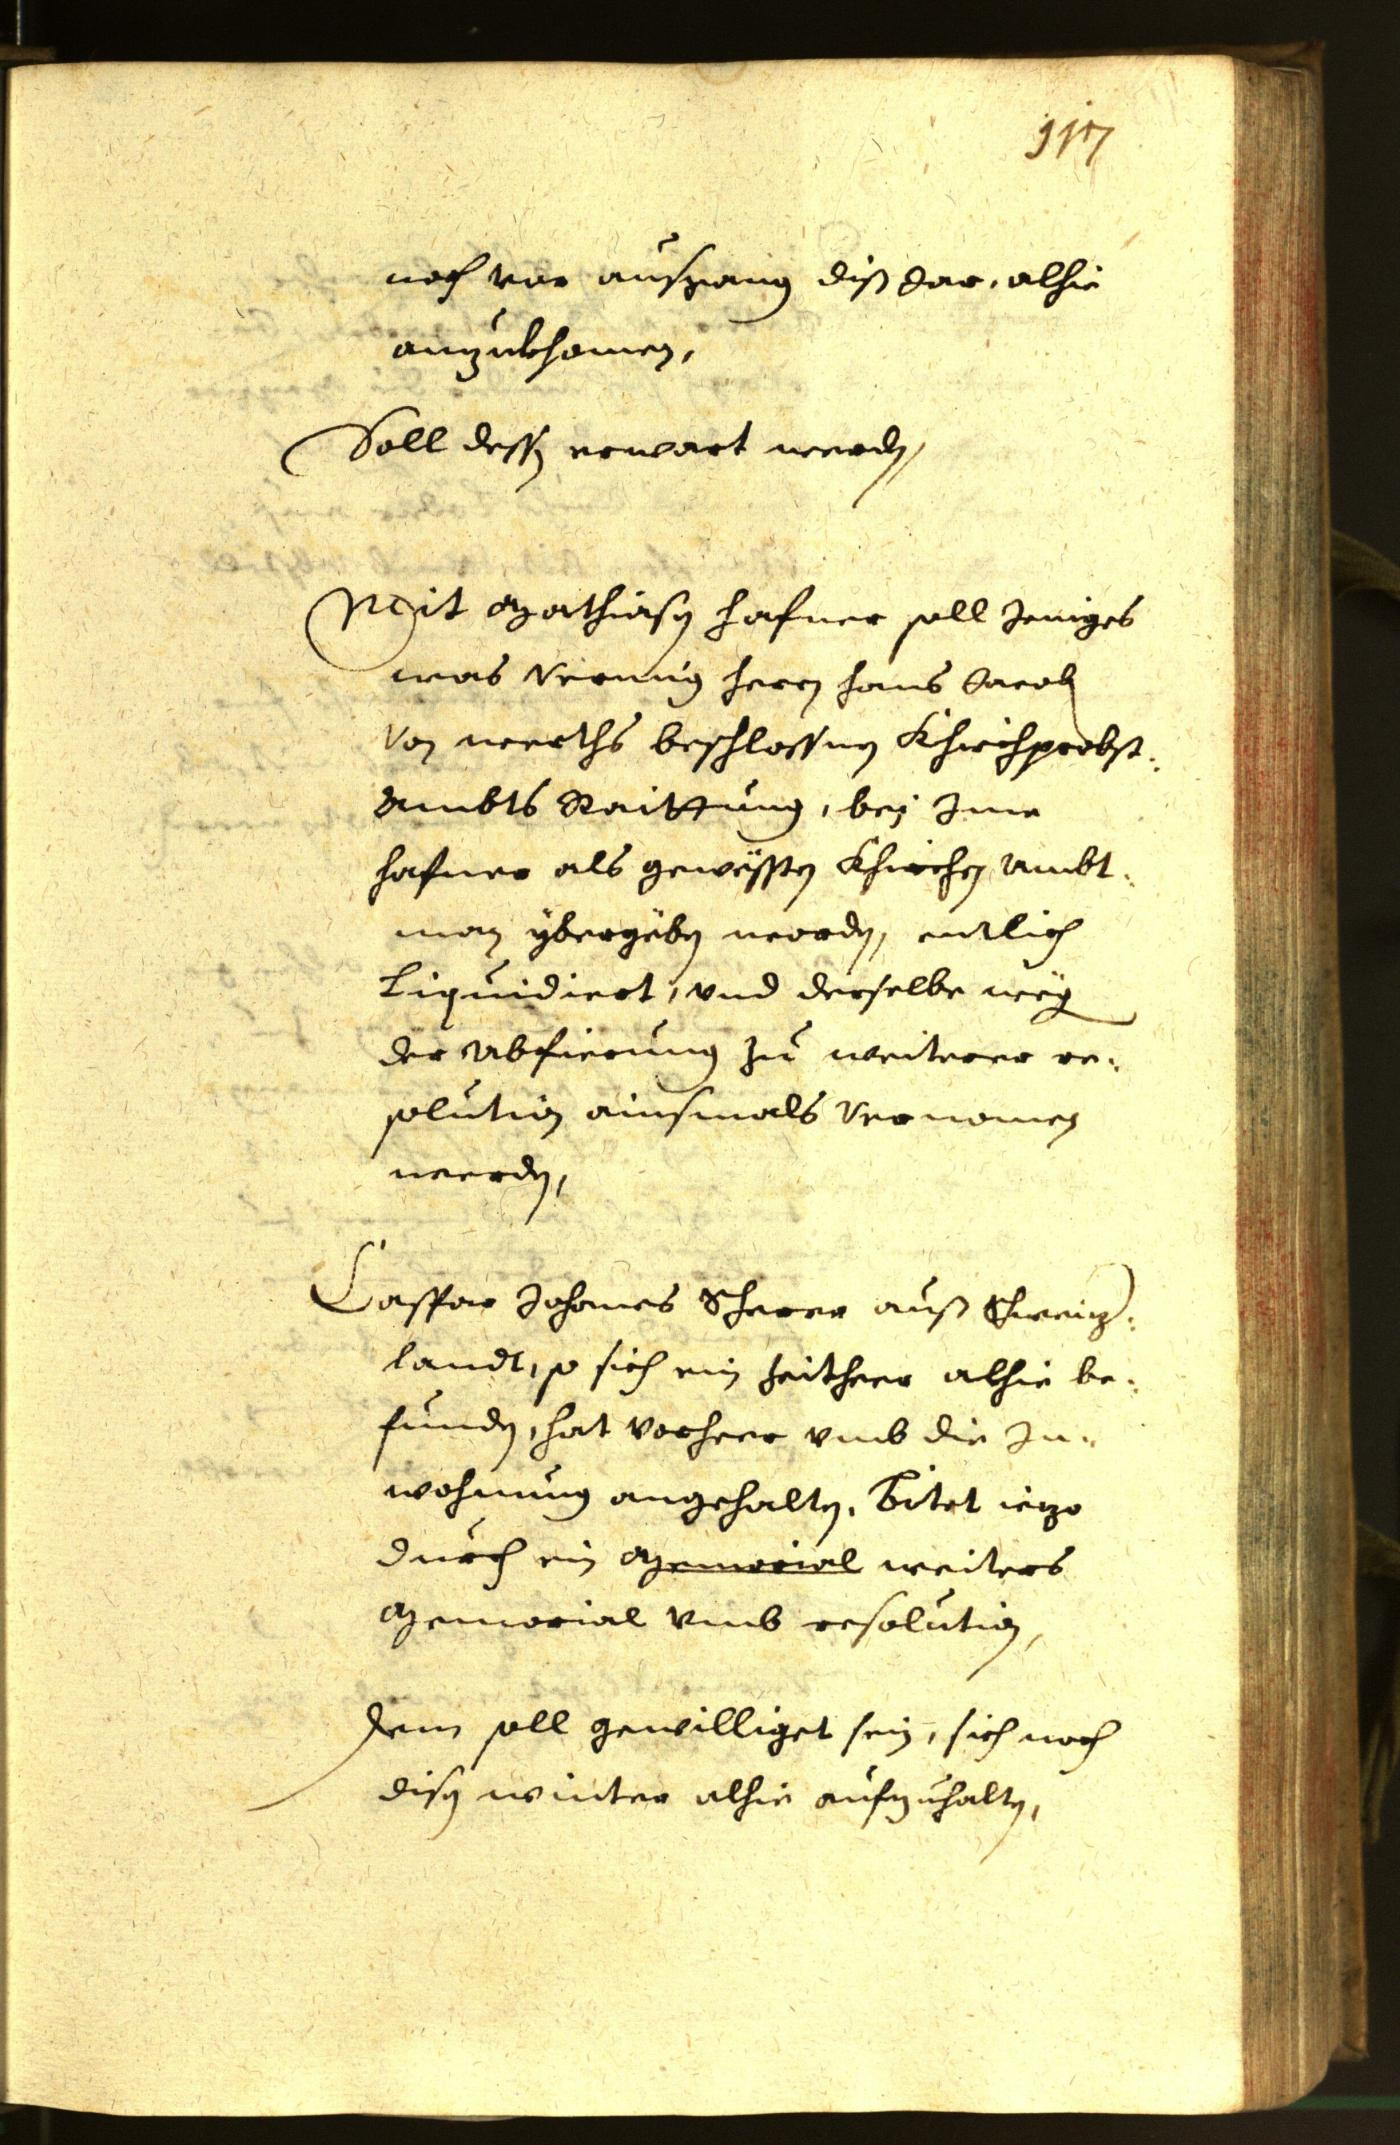 117
noch vor ausgang diß Jar, alhie
anzukhomen,
Soll dessen erwart werden,
Mit Mathiasen Hafner soll Jeniges
was vermüg herrn Hans Jacob
von werths beschlossnen Khirchprobst„
Ambts Raittung, bei Ime
Hafner als gewesten Khirchen Ambt„
man ybergeben worden, entlich
Liquidiert, vnd derselbe weg
der Abfierung zu weiterer re„
solution ainsmals vernomen
werden,
Casspar Johannes Scherer auß Schweiz„
landt, so sich ein zeitheer alhie be„
funden, hat vorheer vmb die In„
wohnung angehalten, Bitet iezo
durch ein Memorial weiters
Memorial vmb resolution,
Dem soll gewilliget sein, sich noch
disen winter alhie aufzuhalten,